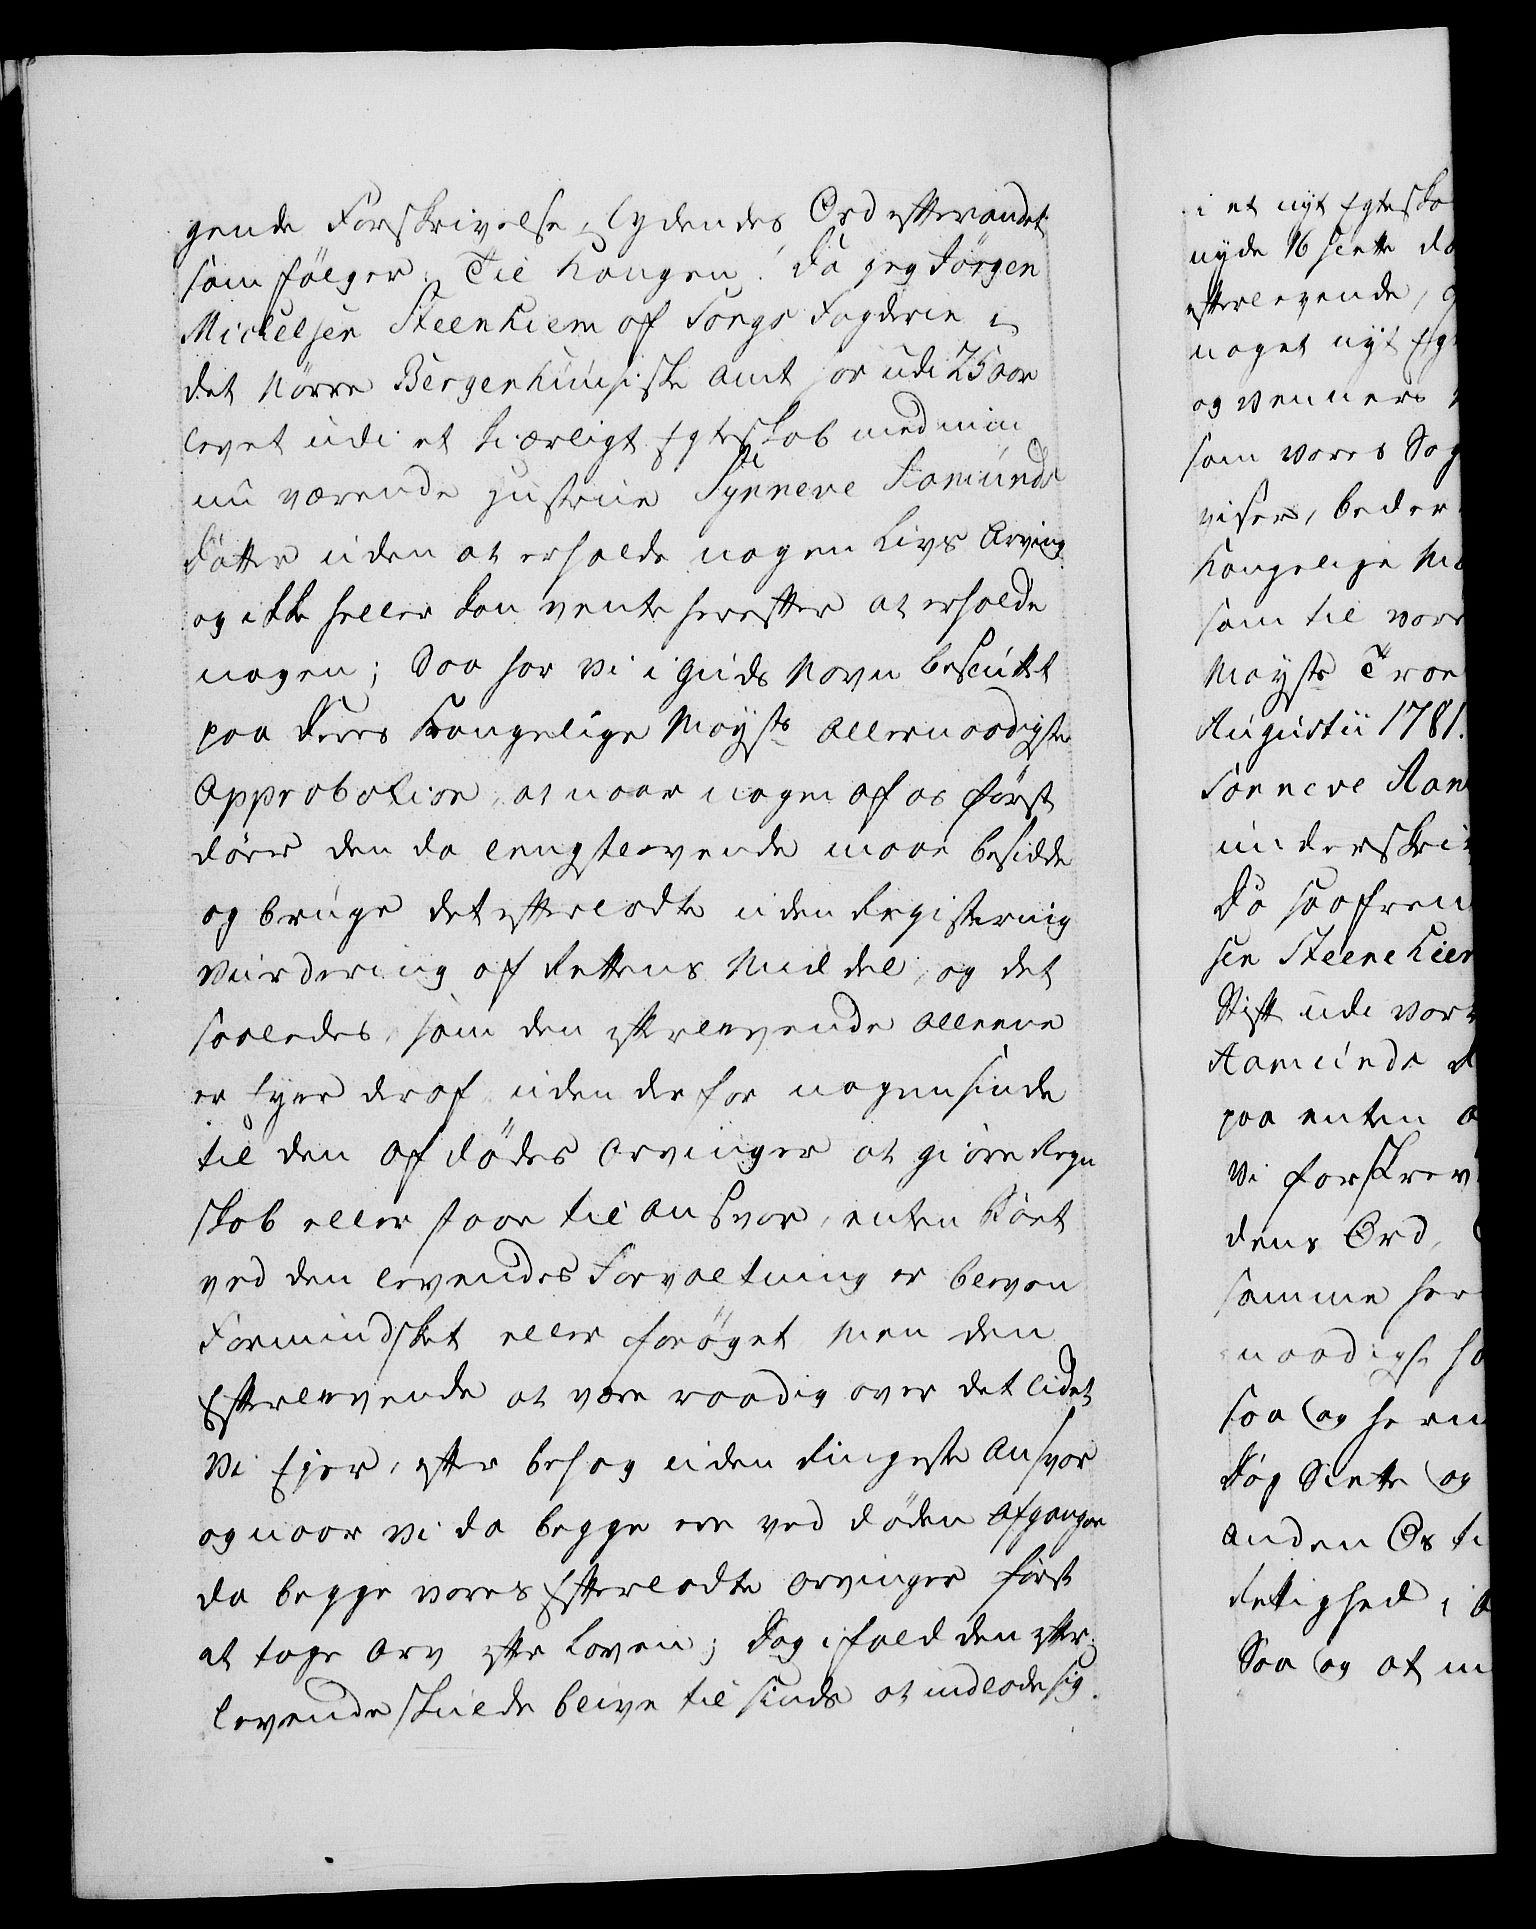 gende Forskrivelse, lydendes Ord efter andet
som følger: Til Kongen! Da jeg Jörgen
Michelsen Steenhiem af Songs Fogderie i
det Nörre Bergenhuusiske Amt har udi 25 aar
levet udi et kierligt Egteskab med min
nu værende Hustrue Synneve Aamunds
Datter uden at erholde nogen Livs Arving
og ikke heller kan vente herefter at erholde
nogen; Saa har Vi i Guds Navn besluttet
paa Deres Kongelige Mayts allernaadigste
Approbation, at naar nogen af os först
döer den da længstlevende maae besidde
og bruge det efterladte uden Registering
Vurdering af Rettens Middel, og det
saaledes, som den efterlevende alleene
er Eyer deraf uden derfor nogensinde
til den afdödes Arvinger at giöre Regn
skab eller staae til Ansvar, enten Boet
ved den levendes Forvaltning er bleven
Formindsket eller forøget Men den
Efterlevende at være raadig over det lidet
Vi Ejer, efter behag uden Ringeste Ansvar
og naar Vi da begge ere ved döden afgangne
da begge vores Efterladte Arvinger först
at tage Arv efter Loven; Dog ifald den efter-
levende skulde blive til sinds at indlade sig
i et nyt Egteska
nyde
efterlevende,
noget nyt Egt
og Venners
som vores Sog
viser, beder
Kongelige Ma
som til vor
Mayts Troe
Augustii 1781.
Sønneve Aam
underskri
Da saasom
sen Steenehiem
Stift udi vor
Aamunds D
paa enten
Vi forskrev
dens Ord,
samme her
naadigst ha
saa og her
Dog
anden Os ti
Rettighed i
Saa og at